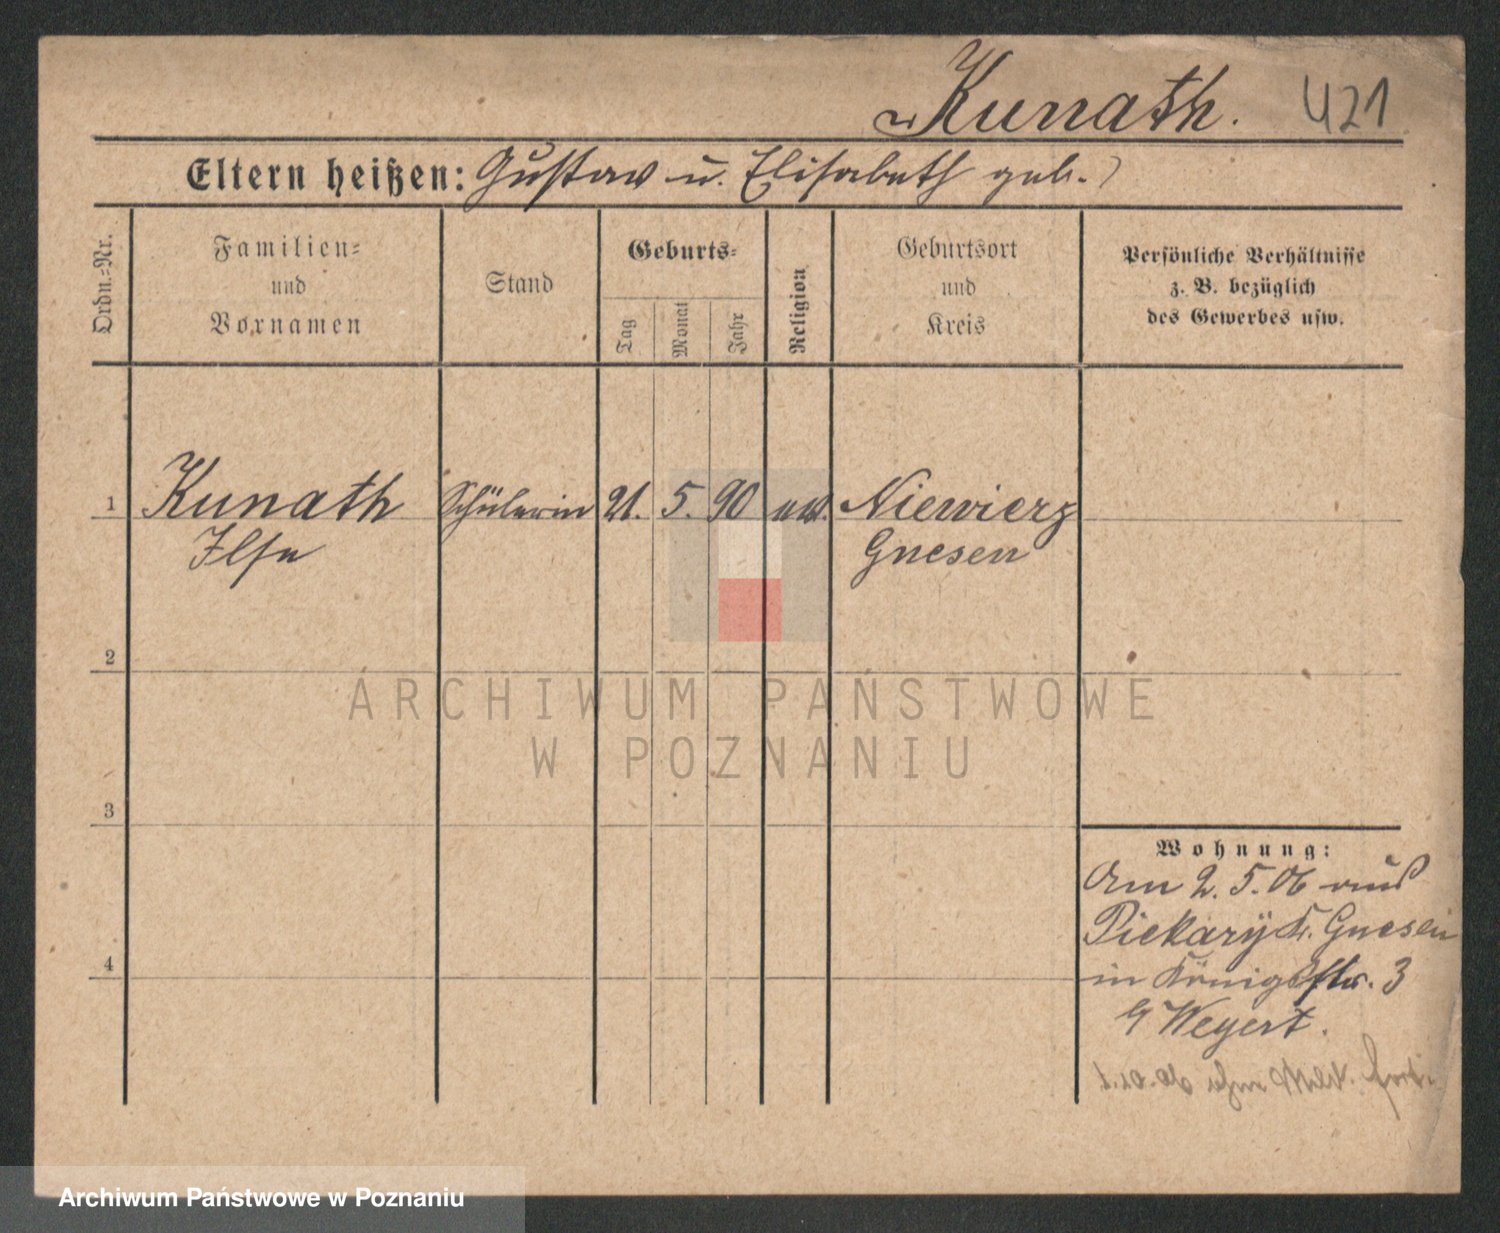 Kunath. 421
Eltern heißen: Gustav u. Elisabeth geb. ?
Ordn.-Nr.
Familien-
und
Vornamen
Stand
Geburts-
Tag
Monat
Jahr
Religion
Geburtsort
und
Kreis
Persönliche Verhältnisse
z. B. bezüglich
des Gewerbes usw.
1 Kunath Schülerin 21. 5. 90 ev. Niewierz
Ilse Gnesen
2
3
4
Wohnung:
Am 2. 5. 06 aus
Piekary Kr. Gnesen
in Königstr. 3
b Weyert.
1.10.06
ARCHIWUM PAŃSTWOWE
W POZNANIU
Archiwum Państwowe w Poznaniu